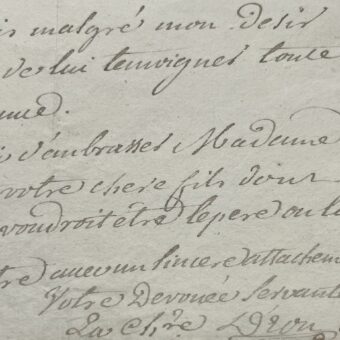 is malgré mon desir
de lui temoigner toute
nnue.
i d'embrasser Madame
votre chere fils dont
voudroit être le pere ou la
tre avec un sincere attachem
Votre Devouée Servante
La Ch're Deon